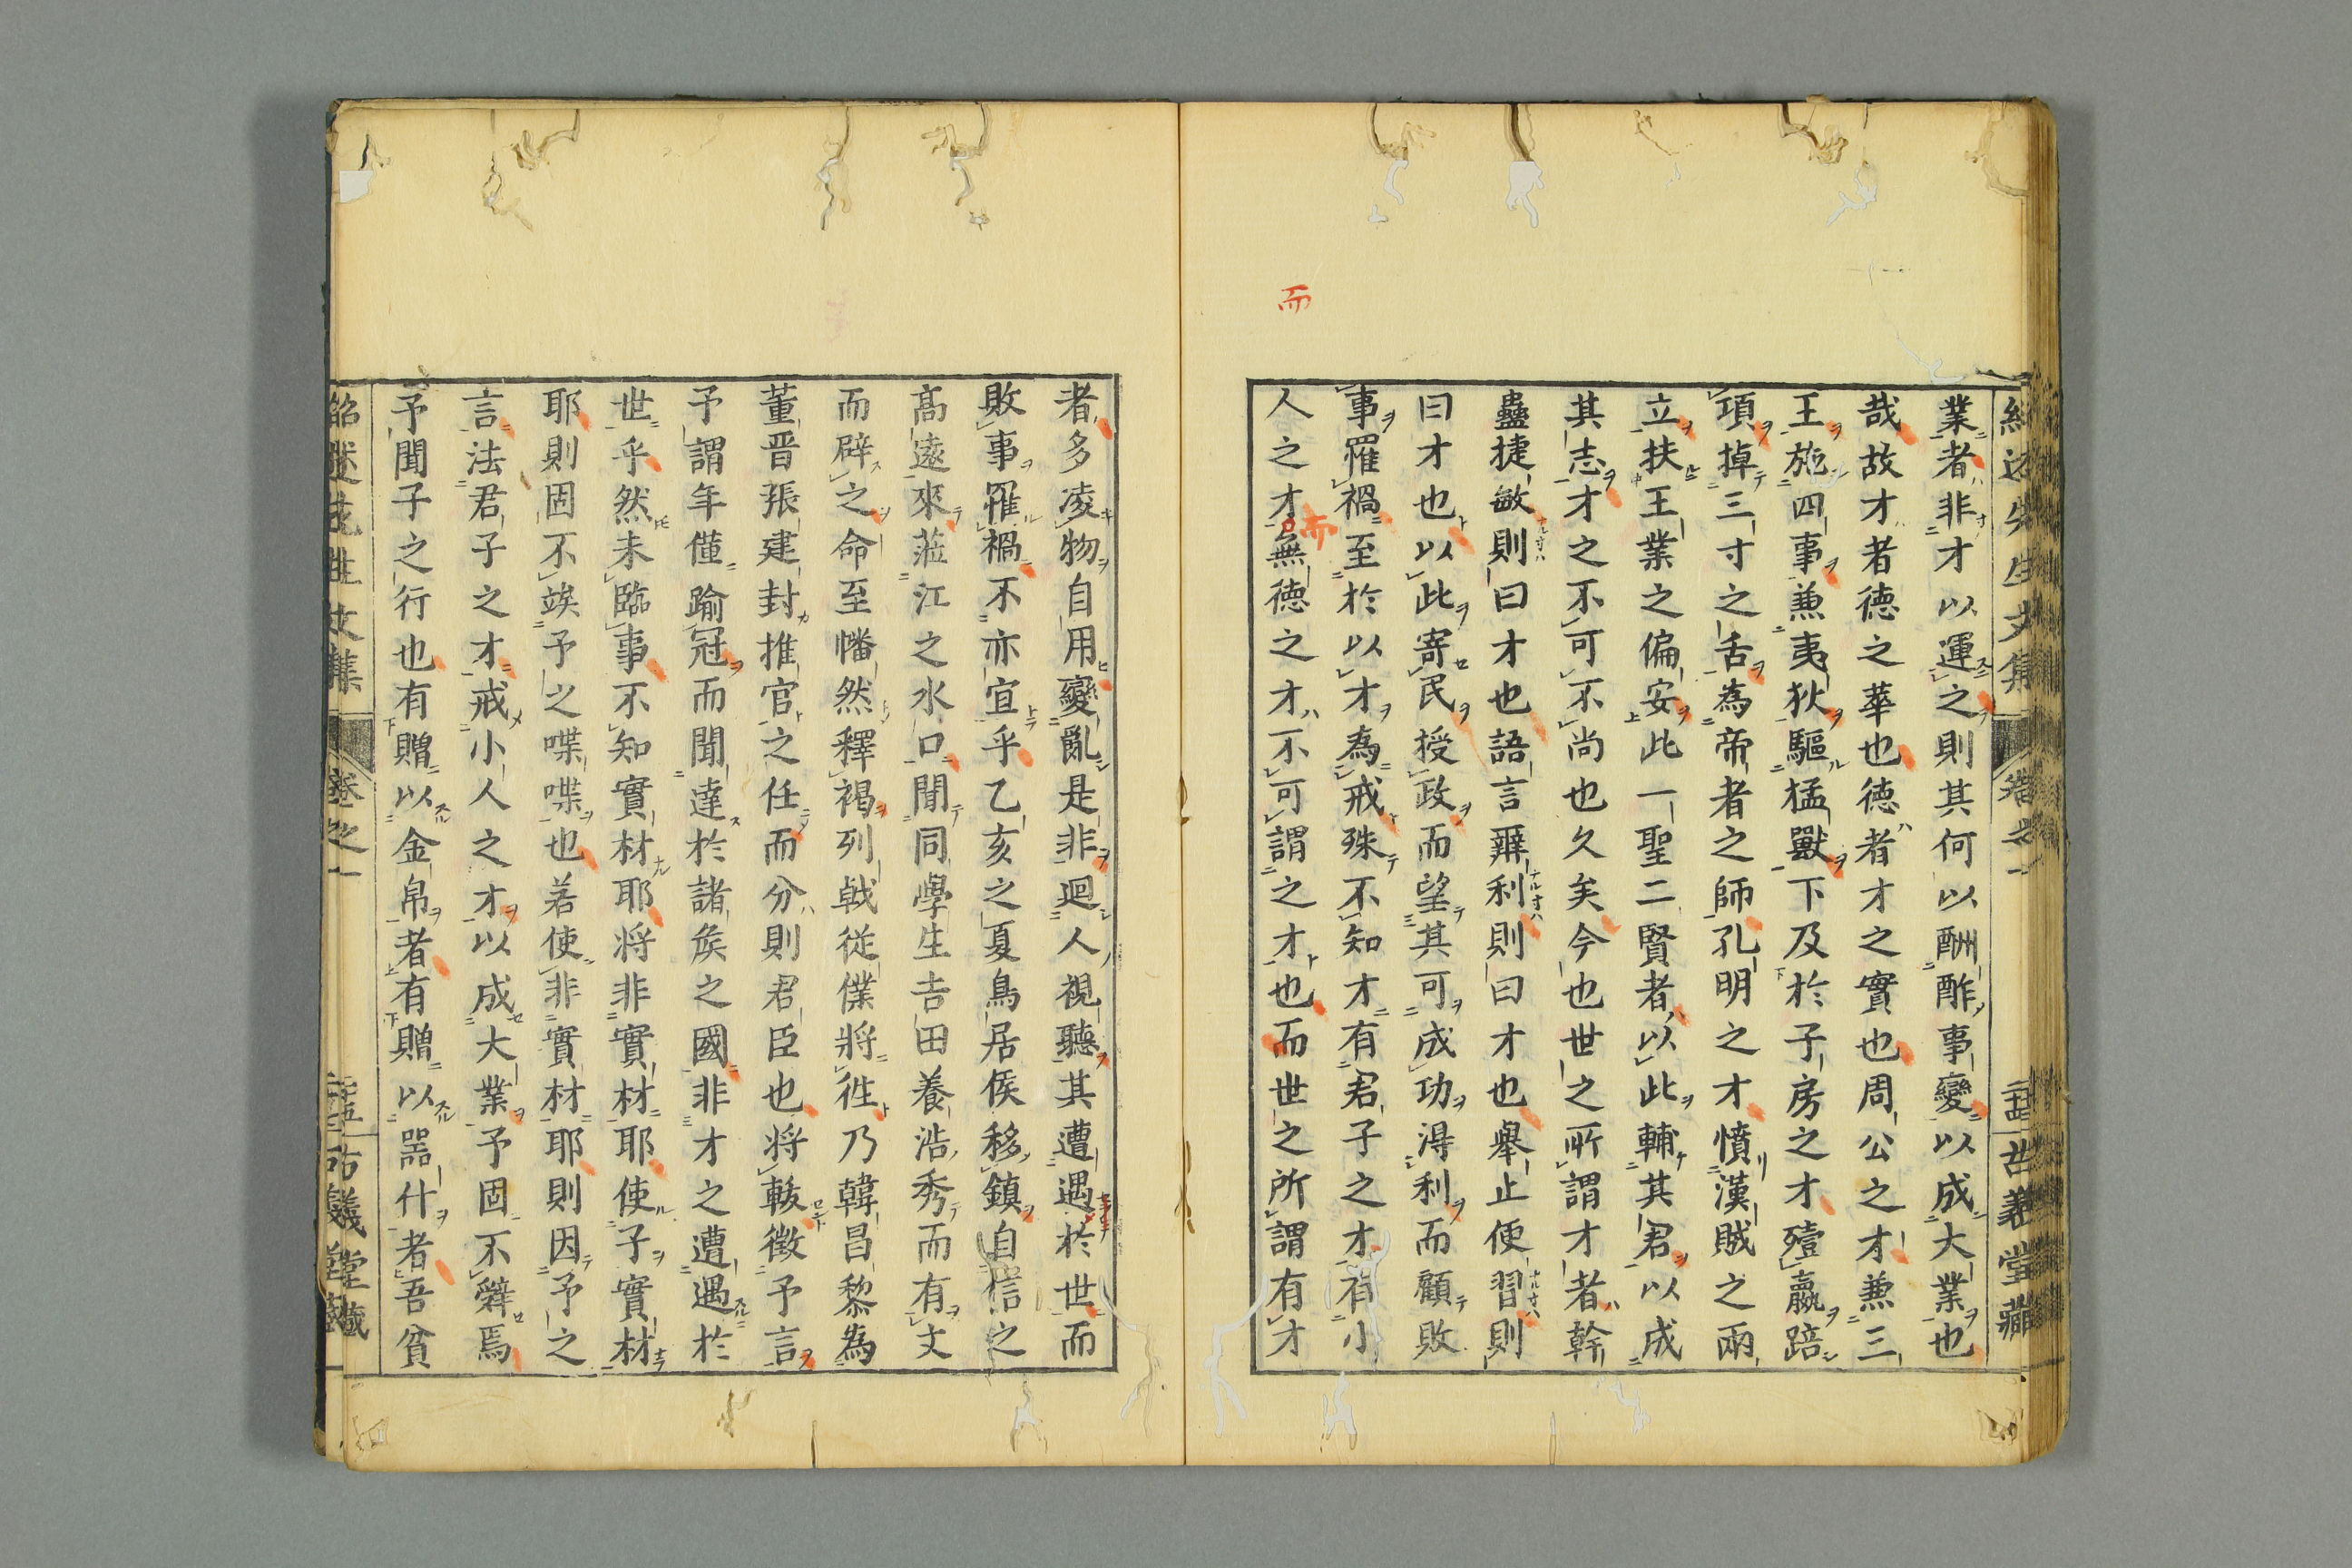 紹述先生文集 卷之一 二十四 古義堂藏
業者非才以運之則其何以酬酢事變以成大業也
哉故才者德之華也德者才之實也周公之才兼三
王施四事兼夷狄驅猛獸下及於子房之才殪嬴踣
項掉三寸之舌為帝者之師孔明之才憤漢賊之兩
立扶王業之偏安此一聖二賢者以此輔其君以成
其志才之不可不尚也久矣今也世之所謂才者幹
蠱捷敏則曰才也語言辨利則曰才也舉止便習則
曰才也以此寄民授政而望其可成功得利而顧敗
事罹禍至於以才為戒殊不知才有君子之才有小
人之才無德之才不可謂之才也而世之所謂有才
而
而
者多凌物自用變亂是非迴人視聽其遭遇於世而
敗事罹禍不亦宜乎乙亥之夏鳥居侯移鎮自信之
高遠來蒞江之水口聞同學生吉田養浩秀而有文
而辟之命至幡然釋褐列戟從僕將徃乃韓昌黎為
董晋張建封推官之任而分則君臣也将軷徵予言
予謂年僅踰冠而聞達於諸侯之國非才之遭遇於
世乎然未臨事不知實材耶将非實材耶使子實材
耶則固不竢予之喋喋也若使非實材耶則因予之
言法君子之才戒小人之才以成大業予固不辭焉
予聞子之行也有贈以金帛者有贈以器什者吾貧
紹述先生文集 卷之一 二十五 古義堂藏